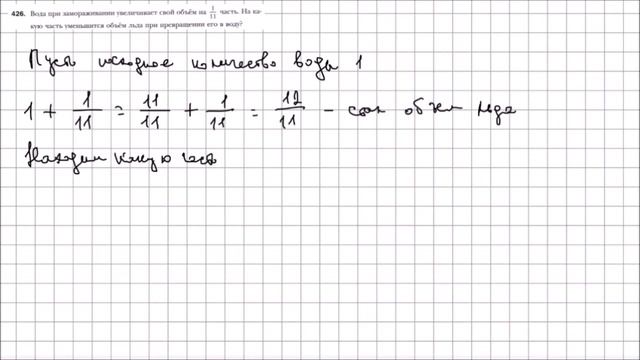 426. Вода при замораживании увеличивает свой объём на 1/11 часть. На ка-
кую часть уменьшится объём льда при превращении его в воду?
Пусть исходное количество воды 1
1 + 1/11 = 11/11 + 1/11 = 12/11 - стал объем льда
Находим какую часть